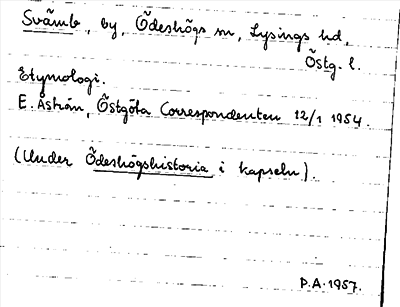 Svämb, by, Ödeshögs sn, Lysings hd,
Östg. l.
Etymologi.
E. Åström, Östgöta Correspondenten 12/1 1954.
(Under Ödeshögshistoria i kapseln).
P.A. 1957.